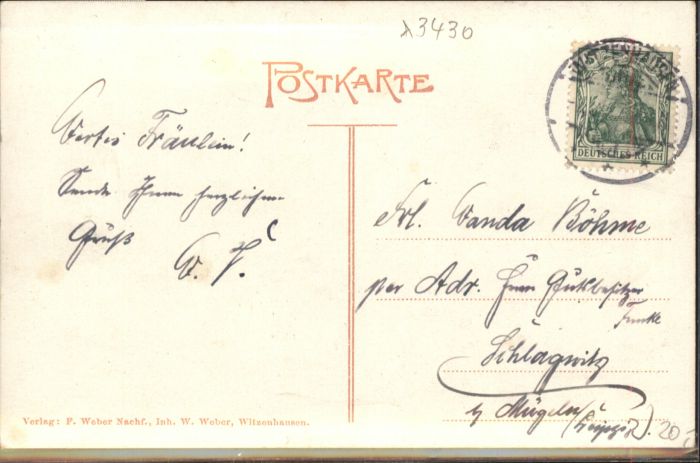 3430
POSTKARTE
WITZENHAUSEN
DEUTSCHES REICH
Wertes Fräulein!
Sende Ihnen herzlichen
Gruß
W.
Frl. Wanda Böhme
per Adr. Herrn Gutsbesitzer
Funke
Schlagwitz
b/ Mügeln (Leipzig).
20
Verlag: F. Weber Nachf., Inh. W. Weber, Witzenhausen.